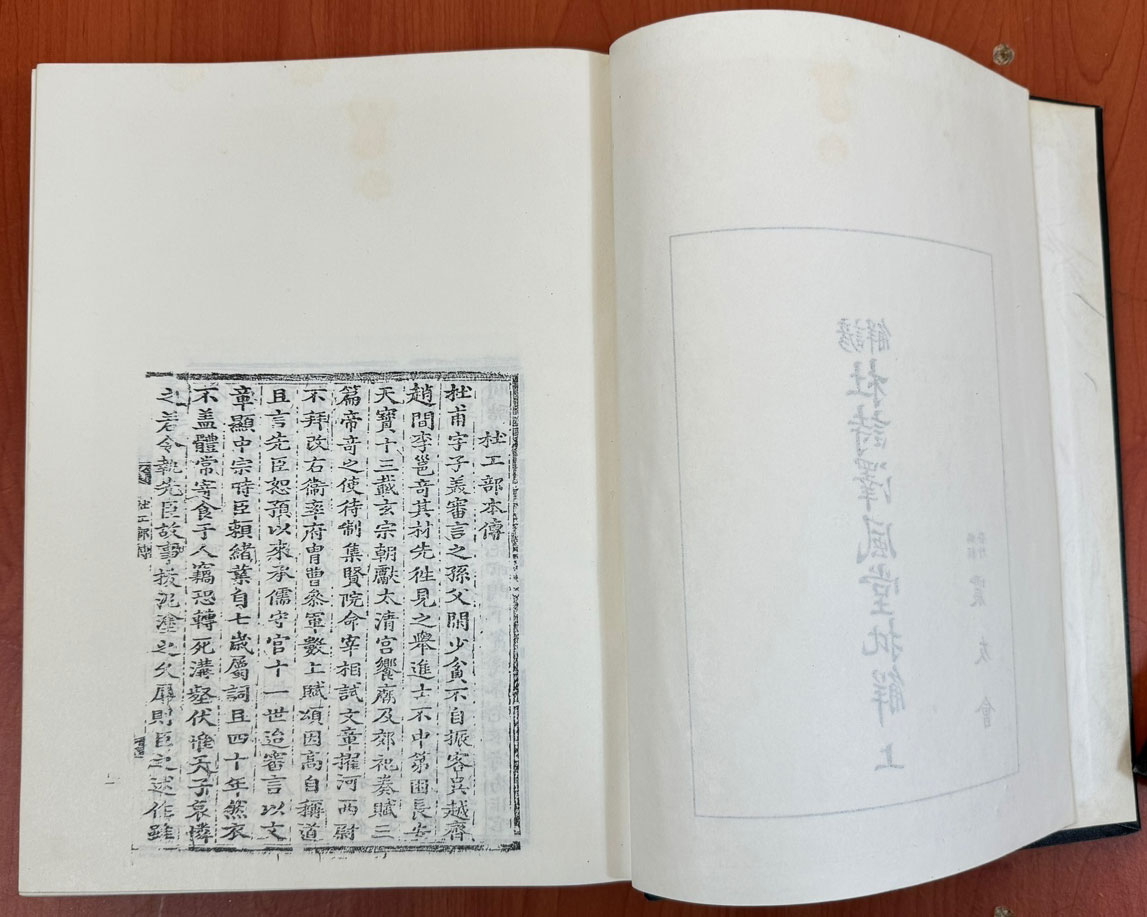 諺解
杜詩澤風堂批解 上
杜工部本傳
杜甫字子美審言之孫父閑少貧不自振客吳越齊
趙間李邕奇其材先徃見之舉進士不中第困長安
天寶十三載玄宗朝獻太清宮饗廟及郊祀奏賦三
篇帝奇之使待制集賢院命宰相試文章擢河西尉
不拜改右衛率府冑曹參軍數上賦頌因高自稱道
且言先臣恕預以來承儒守官十一世迨審言以文
章顯中宗時臣賴緒業自七歲屬詞且四十年然衣
不盖體常寄食于人竊恐轉死溝壑伏惟天子哀憐
之若令執先臣故事拔泥塗之久辱則臣之述作雖
杜工部傳